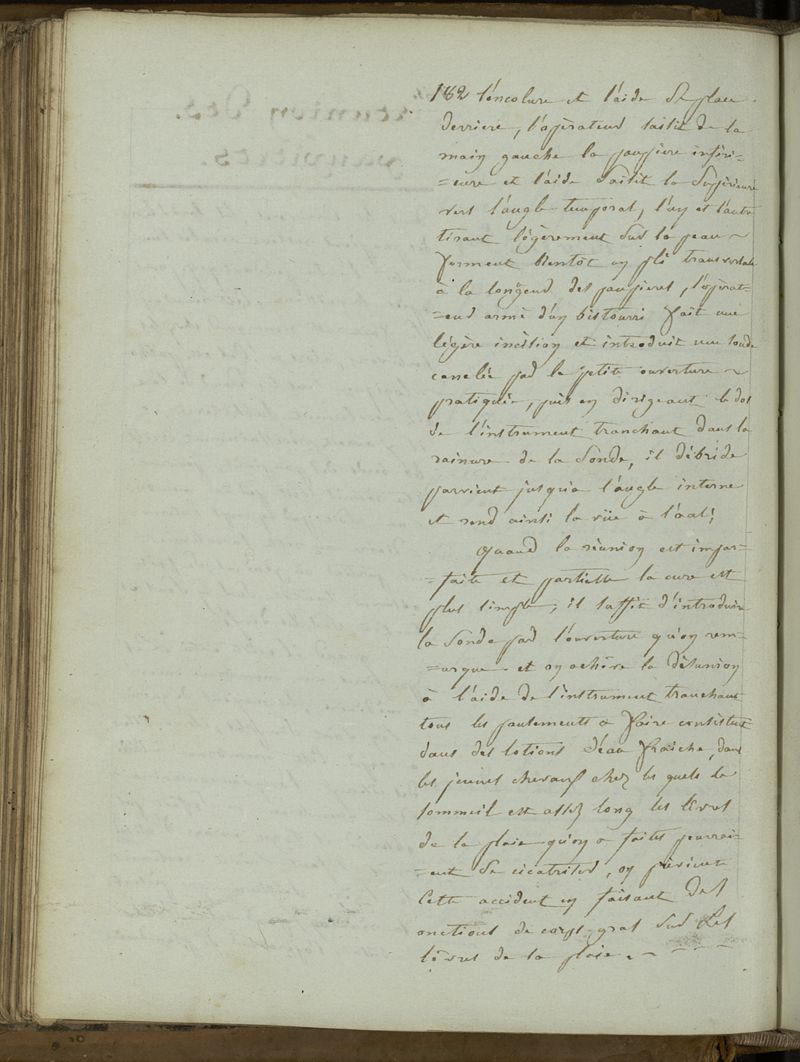 182 l'encolure et l'aide se place
derriere, l'opérateur saisit de la
main gauche la paupiere inféri-
=eure et l'aide saisit la supérieure
vers l'angle temporal, l'un et l'autre
tirant légèrement sur la peau ~
forment bientôt un pli transversale
à la longeur des paupieres, l'opérat-
=eur armé d'un bistourri fait une
légère incision et introduit une sonde
canelée par la petite ouverture ~
pratiquée, puis en dirigeant le dos
de l'instrument tranchant dans la
rainure de la sonde, il débride
parvient jusqu'a l'angle interne
et rend ainsi la vüe à l'œil;
Quand la réunion est impar-
=faite et partielle la cure est
plus simple; il suffit d'introduire
la sonde par l'ouverture qu'on rem-
=arque et on achève la désunion
à l'aide de l'instrument tranchant
tous les pansements a faire consistent
dans des lotions d'eau fraiche, dans
les jeunes chevaux chez les quels le
sommeil est assez long les levres
de la plaie qu'on a faites pourrai-
=ent se cicatriser, on prévient
cette accident en faisant des
onctions de corps gras sur les
lèvres de la plaie. ~ ~ ~ ~
réunion des
paupières.